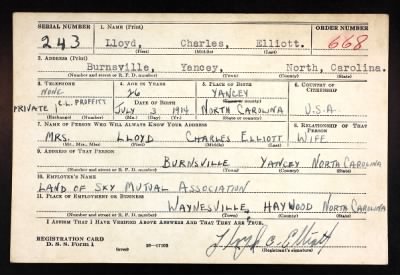 SERIAL NUMBER 1. NAME (Print) ORDER NUMBER
243 Lloyd, Charles, Elliott. 668
(First) (Middle) (Last)
2. ADDRESS (Print)
Burnsville, Yancey, North, Carolina.
(Number and street or R. F. D. number) (Town) (County) (State)
3. TELEPHONE 4. AGE IN YEARS 5. PLACE OF BIRTH 6. COUNTRY OF CITIZENSHIP
NONE 26 YANCEY
PRIVATE R.L. PROFFITT DATE OF BIRTH (Town or county)
JULY 3 1914 NORTH CAROLINA U.S.A.
(Exchange) (Number) (Mo.) (Day) (Yr.) (State or country)
7. NAME OF PERSON WHO WILL ALWAYS KNOW YOUR ADDRESS 8. RELATIONSHIP OF THAT PERSON
MRS. LLOYD CHARLES ELLIOTT WIFE
(Mr., Mrs., Miss) (First) (Middle) (Last)
9. ADDRESS OF THAT PERSON
BURNSVILLE YANCEY NORTH CAROLINA
(Number and street or R. F. D. number) (Town) (County) (State)
10. EMPLOYER'S NAME
LAND OF SKY MUTUAL ASSOCIATION
11. PLACE OF EMPLOYMENT OR BUSINESS
WAYNESVILLE, HAYWOOD NORTH CAROLINA
(Number and street or R. F. D. number) (Town) (County) (State)
I AFFIRM THAT I HAVE VERIFIED ABOVE ANSWERS AND THAT THEY ARE TRUE.
REGISTRATION CARD
D. S. S. Form 1 (over) 16—17105 Lloyd C Elliott
(Registrant's signature)